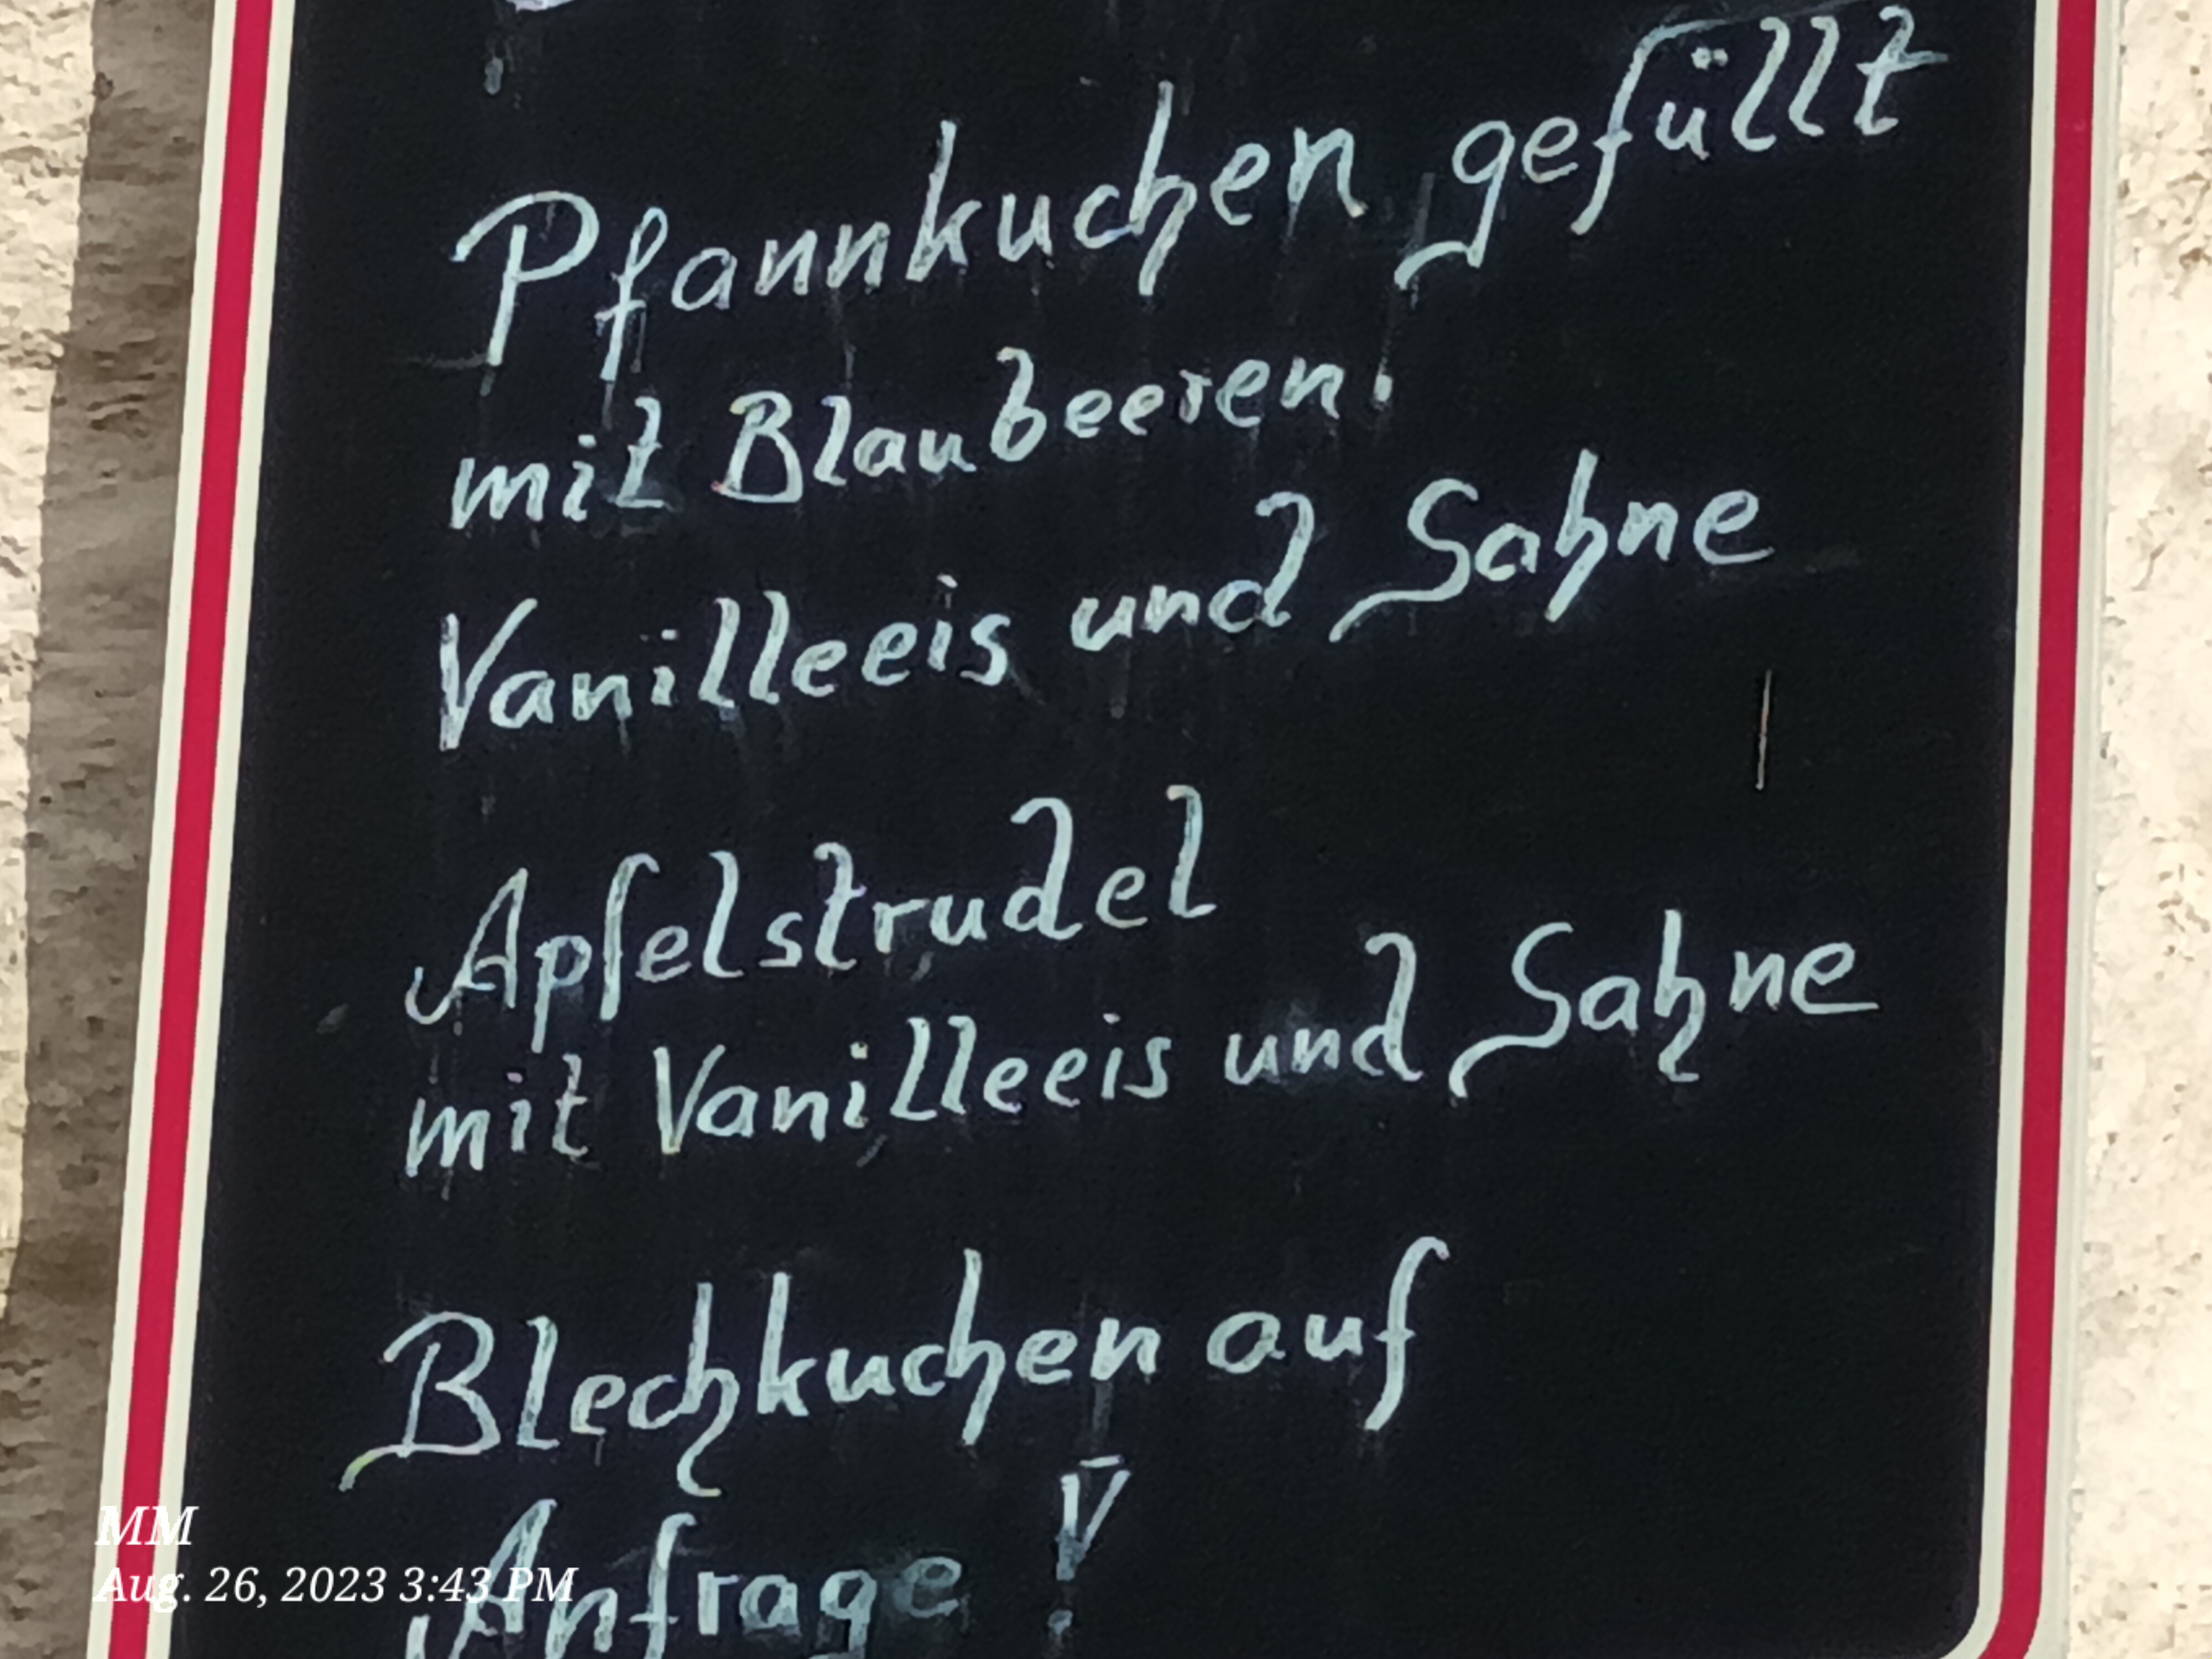 Pfannkuchen gefüllt
mit Blaubeeren.
Vanilleeis und Sahne
Apfelstrudel
mit Vanilleeis und Sahne
Blechkuchen auf
Anfrage!
MM
Aug. 26, 2023 3:43 PM